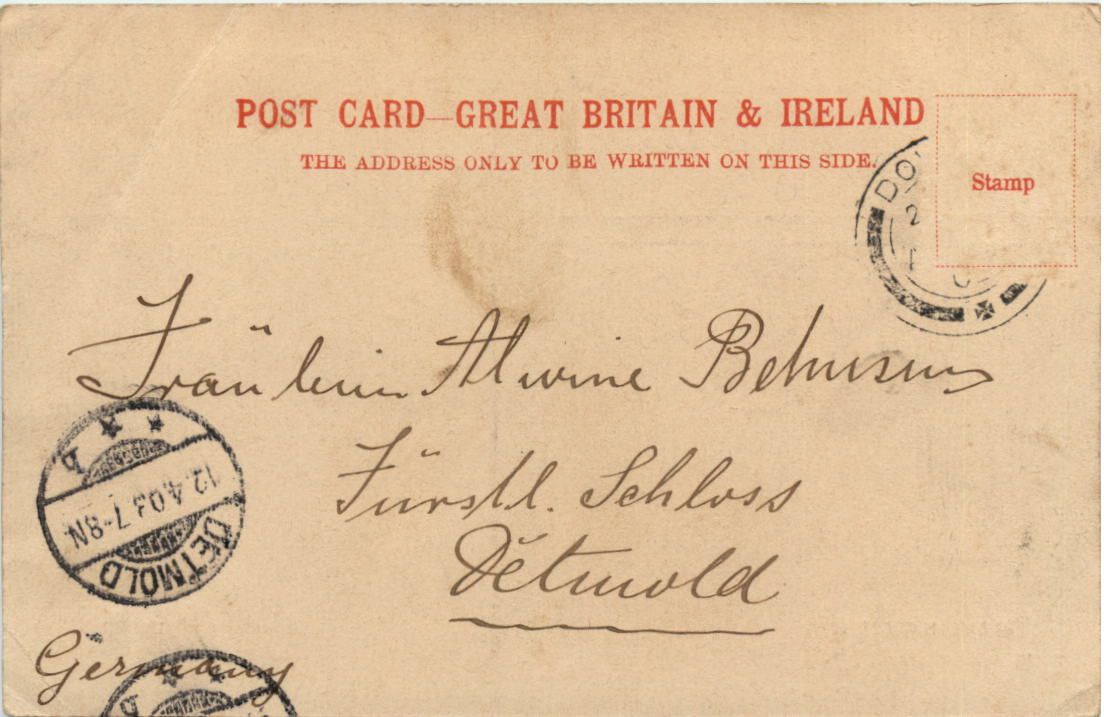 POST CARD—GREAT BRITAIN & IRELAND
THE ADDRESS ONLY TO BE WRITTEN ON THIS SIDE.
Stamp
DO
2
Fräulein Alwine
Fürstl. Schloss
Detmold
Germany
12.4.03.7-8N.
DETMOLD